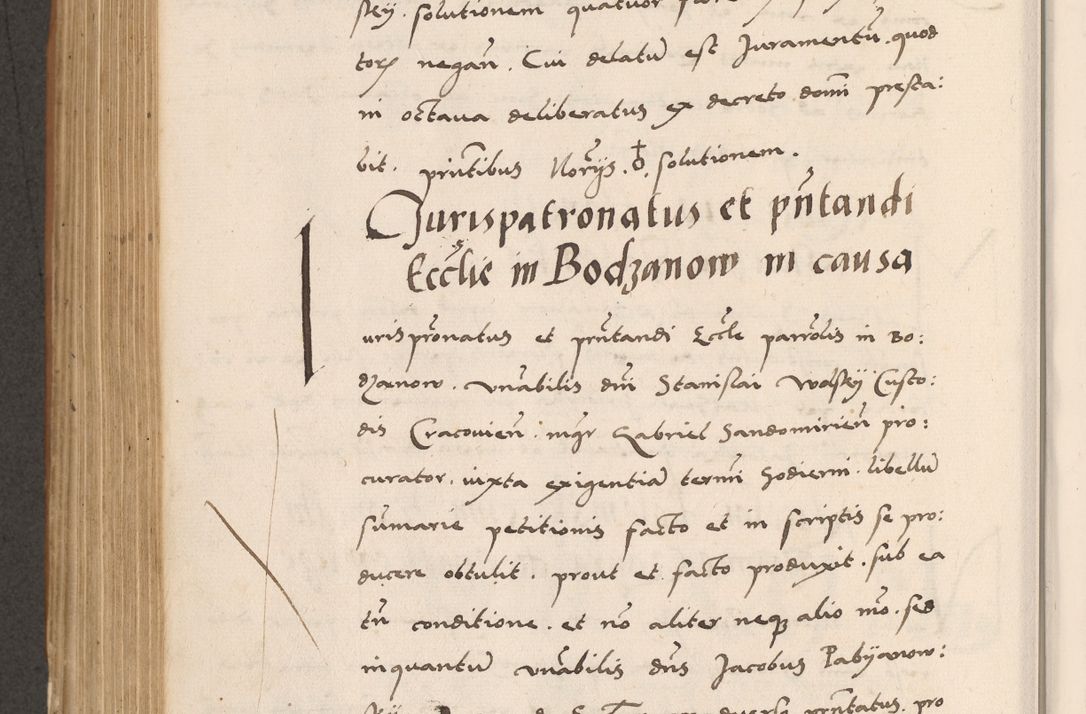 skỹ. solutionem quatuor
torz negañ. Cui delatũ est Juramentũ. quod
in octava deliberatus ex decreto domĩ presta:
bit. pñtibus Norijs. solutionem.
Jurispatronatus et pñtandi
Ecctie in Bodzanow in causa
urispronatus et pñtandi Eccłe parrolis in Bo:
dzanow. vñabilis dñi Stanislai Wolskỹ Custo:
dis Cracovieñ. mgr Gabriel Sandomirieñ pro:
curator. iuxta exigentiã termi hodierni. libellũ
sũmarie petitionis facto et in scriptis se pro:
ducere obtulit. prout et facto produxit. sub ea
tñ conditione. et nõ aliter neqz alio mõ. sed
inquantũ vñabilis dñs Jacobus Pabijanow:
pñtatus. pro